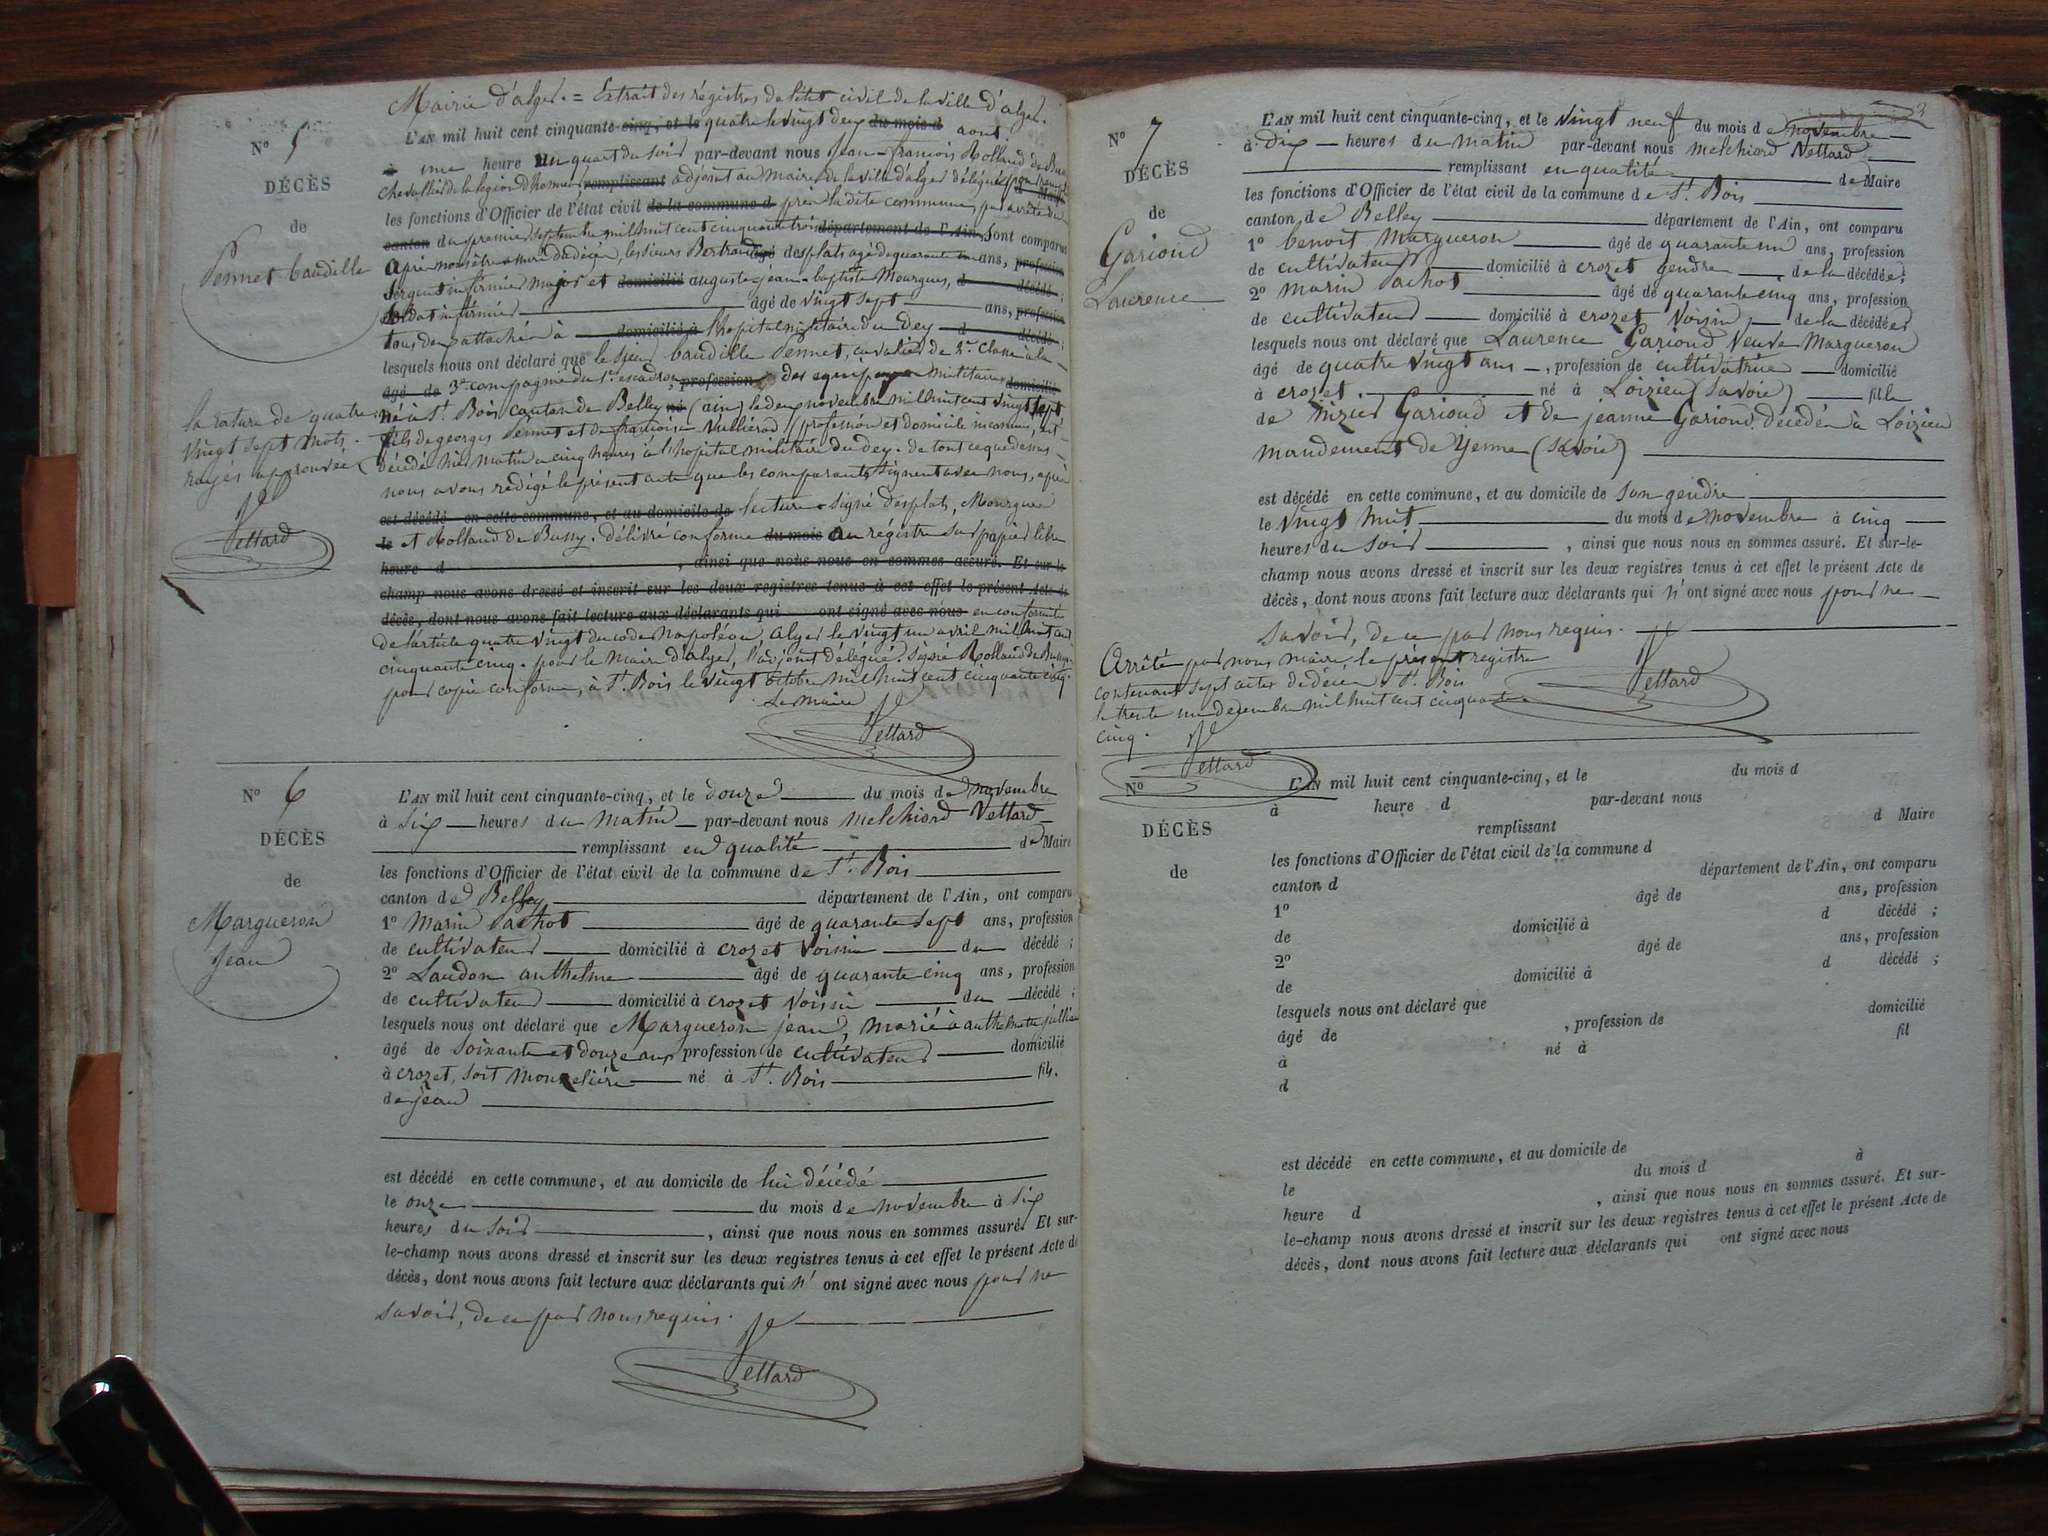 Mairie d'alger. = Extrait des régistres de l'état civil de la ville d'alger.
N° 5
DÉCÈS
de
Pennet baudille
L'AN mil huit cent cinquante-cinq, et le quatre le vingt deux du mois d aout
à une heure un quart du soir par-devant nous Jean-françois Rolland de Bussy
chevallier de la légion d'honneur remplissant adjoint au maire de la ville d'alger délégué pour remplir Maire
les fonctions d'Officier de l'état civil de la commune d près la dite commune, par arrêté du
canton du premier septembre mil huit cent cinquante trois département de l'Ain, sont comparus
après nous être assuré du décès, les sieurs Bertrand âgé desplats agé de quarante un ans, profession
Sergent infirmier major et domicilié auguste jean-baptiste Mourgues, d décédé ;
soldat infirmier âgé de vingt sept ans, profession
tous deux attachés à domicilié à l'hopital militaire du Dey d décédé ;
lesquels nous ont déclaré que le sieur baudille Pennet, cavalier de 2e Classe à la
âgé de 3e compagnie du 1er escadron profession des equipages militaires domicilié
né à St. Bois canton de Belley né (ain) le deux novembre mil huit cent vingt sept
fils de georges Pennet et de françoise Vullierod (profession et domicile inconnus, est
décédé hier matin a cinq heures à l'hopital militaire du dey. de tout ce que dessus
nous avons rédigé le présent acte que les comparants signent avec nous, après
est décédé en cette commune, et au domicile de lecture. signé desplats, Mourgues
le et Rolland de Bussy. délivré conforme du mois au régistre sur papier libre
heure d , ainsi que nous nous en sommes assuré. Et sur-le
champ nous avons dressé et inscrit sur les deux registres tenus à cet effet le présent Acte de
décès, dont nous avons fait lecture aux déclarants qui ont signé avec nous en conformité
de l'article quatre vingt du code napoléon, alger le vingt un avril mil huit cent
cinquante cinq. pour le Maire d'alger, l'adjoint délégué. signé Rolland de Bussy.
pour copie conforme, à St. Bois le vingt octobre mil huit cent cinquante cinq.
Le maire
Vettard
la rature de quatre
vingt sept mots
rayés approuvée
Vettard
N° 6
DÉCÈS
de
Margueron
Jean
L'AN mil huit cent cinquante-cinq, et le douze du mois de novembre
à six heures du matin par-devant nous melchiord Vettard
remplissant en qualité de Maire
les fonctions d'Officier de l'état civil de la commune de St. Bois
canton de Belley département de l'Ain, ont comparu
1° Marin Pachot âgé de quarante sept ans, profession
de cultivateur domicilié à crozet Voisin du décédé ;
2° Laudon anthelme âgé de quarante cinq ans, profession
de cultivateur domicilié à crozet Voisin du décédé ;
lesquels nous ont déclaré que Margueron jean, marié à anthelmette jullien
âgé de soixante et douze ans profession de cultivateur domicilié
à crozet, soit monzelière né à St. Bois fils.
de jean
est décédé en cette commune, et au domicile de lui décédé
le onze du mois de novembre à six
heures du soir , ainsi que nous nous en sommes assuré. Et sur-
le-champ nous avons dressé et inscrit sur les deux registres tenus à cet effet le présent Acte de
décès, dont nous avons fait lecture aux déclarants qui n' ont signé avec nous pour ne
savoir, de ce par nous requis.
Vettard
3
N° 7
DÉCÈS
de
Gariond
Laurence
L'AN mil huit cent cinquante-cinq, et le vingt neuf du mois de novembre
à dix heures du matin par-devant nous melchiord Vettard
remplissant en qualité de Maire
les fonctions d'Officier de l'état civil de la commune de St. Bois
canton de Belley département de l'Ain, ont comparu
1° benoit Margueron âgé de quarante un ans, profession
de cultivateur domicilié à crozet gendre de la décédée ;
2° marin Pachot âgé de quarante cinq ans, profession
de cultivateur domicilié à crozet Voisin de la décédée
lesquels nous ont déclaré que Laurence Gariond Veuve Margueron
âgé de quatre vingt ans , profession de cultivatrice domicilié
à crozet. né à Loizieu (savoie) fille
de nizier Gariond et de jeanne Gariond décédés à Loizieu
mandement de yenne (savoie)
est décédé en cette commune, et au domicile de son gendre
le vingt huit du mois de novembre à cinq
heures du soir , ainsi que nous nous en sommes assuré. Et sur-le-
champ nous avons dressé et inscrit sur les deux registres tenus à cet effet le présent Acte de
décès, dont nous avons fait lecture aux déclarants qui n' ont signé avec nous pour ne
savoir, de ce par nous requis.
Vettard
Arrêté par nous maire, le présent registre
contenant sept actes de décès à St. Bois
le trente un decembre mil huit cent cinquante
cinq.
Vettard
N°
DÉCÈS
de
L'AN mil huit cent cinquante-cinq, et le du mois d
à heure d par-devant nous
remplissant d Maire
les fonctions d'Officier de l'état civil de la commune d
canton d département de l'Ain, ont comparu
1° âgé de ans, profession
de domicilié à d décédé ;
2° âgé de ans, profession
de domicilié à d décédé ;
lesquels nous ont déclaré que
âgé de , profession de domicilié
à né à fil
d
est décédé en cette commune, et au domicile de
le du mois d à
heure d , ainsi que nous nous en sommes assuré. Et sur-
le-champ nous avons dressé et inscrit sur les deux registres tenus à cet effet le présent Acte de
décès, dont nous avons fait lecture aux déclarants qui ont signé avec nous